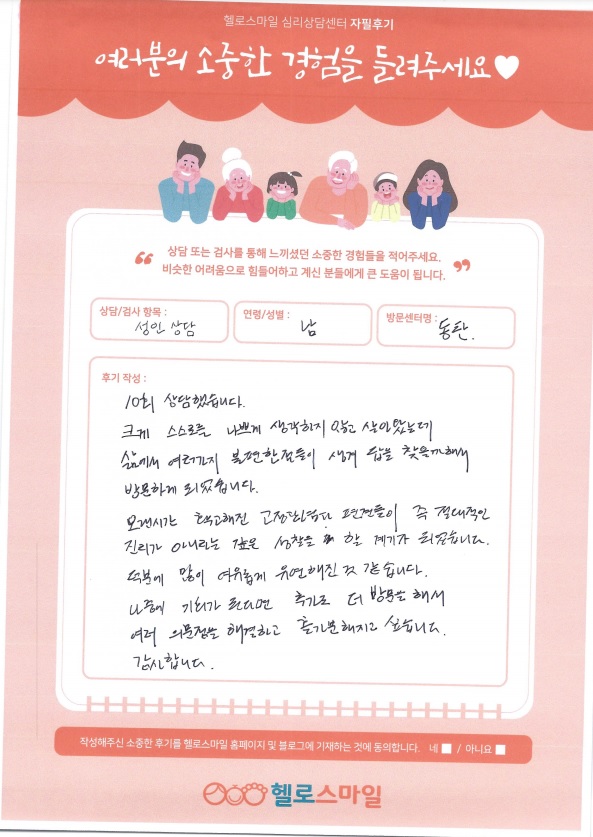 헬로스마일 심리상담센터 자필후기
여러분의 소중한 경험을 들려주세요♥
상담 또는 검사를 통해 느끼셨던 소중한 경험들을 적어주세요.
비슷한 어려움으로 힘들어하고 계신 분들에게 큰 도움이 됩니다.
상담/검사 항목 :
성인 상담
연령/성별 :
남
방문센터명 :
동탄.
후기 작성 :
10회 상담했습니다.
크게 스스로를 나쁘게 생각하지 않고 살아왔는데
삶에서 여러가지 불편한점들이 생겨 답을 찾을까해서
방문하게 되었습니다.
오랜시간 견고해진 고정관념과 편견들이 즉 절대적인
진리가 아니라는 깊은 성찰을 할 계기가 되었습니다.
덕분에 많이 여유롭게 유연해진 것 같습니다.
나중에 기회가 된다면 추가로 더 방문을 해서
여러 의문점을 해결하고 홀가분해지고 싶습니다.
감사합니다.
작성해주신 소중한 후기를 헬로스마일 홈페이지 및 블로그에 기재하는 것에 동의합니다. 네 / 아니요
헬로스마일